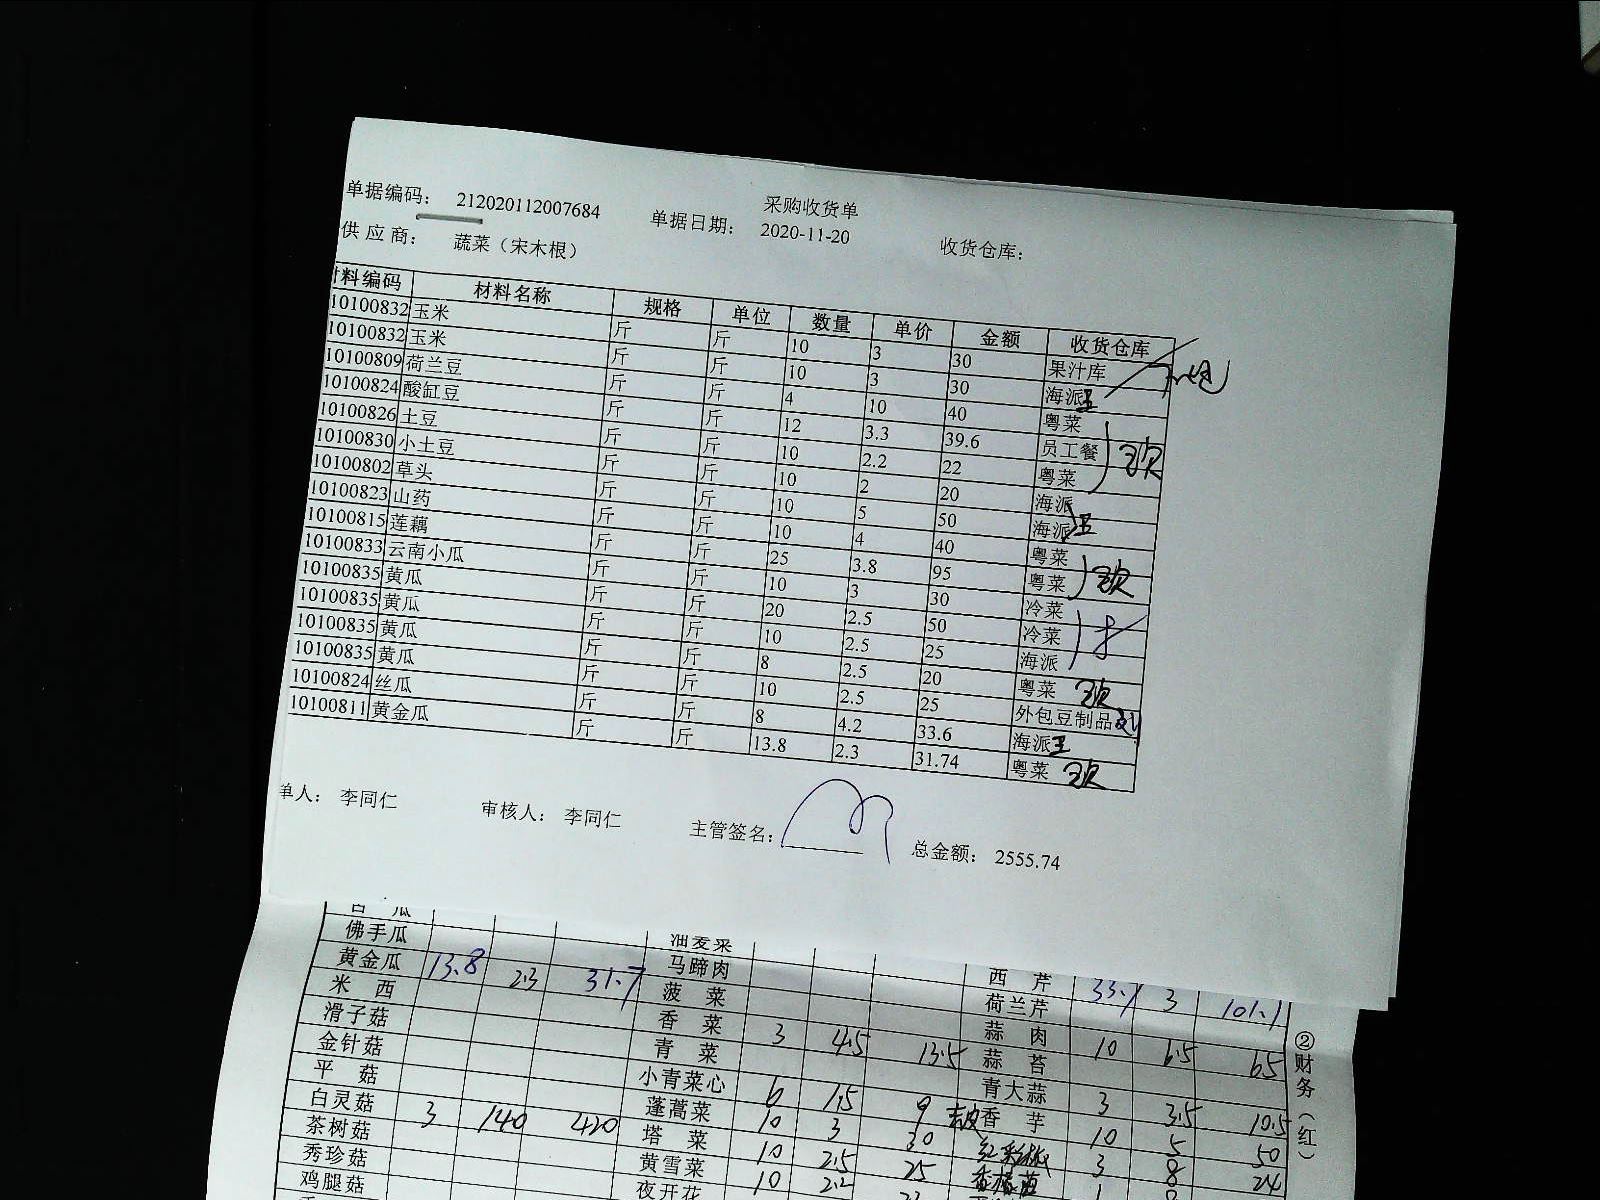 采购收货单
单据编码： 212020112007684 单据日期： 2020-11-20 收货仓库：
供应商： 蔬菜（宋木根）
料编码 材料名称 规格 单位 数量 单价 金额 收货仓库
10100832 玉米 斤 斤 10 3 30 果汁库
10100832 玉米 斤 斤 10 3 30 海派 王
10100809 荷兰豆 斤 斤 4 10 40 粤菜
10100824 酸缸豆 斤 斤 12 3.3 39.6 员工餐
10100826 土豆 斤 斤 10 2.2 22 粤菜
10100830 小土豆 斤 斤 10 2 20 海派
10100802 草头 斤 斤 10 5 50 海派 王
10100823 山药 斤 斤 10 4 40 粤菜
10100815 莲藕 斤 斤 25 3.8 95 粤菜
10100833 云南小瓜 斤 斤 10 3 30 冷菜
10100835 黄瓜 斤 斤 20 2.5 50 冷菜
10100835 黄瓜 斤 斤 10 2.5 25 海派
10100835 黄瓜 斤 斤 8 2.5 20 粤菜
10100835 黄瓜 斤 斤 10 2.5 25 外包豆制品
10100824 丝瓜 斤 斤 8 4.2 33.6 海派 王
10100811 黄金瓜 斤 斤 13.8 2.3 31.74 粤菜
单人： 李同仁 审核人： 李同仁 主管签名： 总金额： 2555.74
佛手瓜 油麦菜
黄金瓜 13.8 2.3 31.7 马蹄肉 西芹 33.7 3 101.1
米西 菠菜 荷兰芹
滑子菇 香菜 3 4.5 13.5 蒜肉 10 6.5 65
金针菇 青菜 蒜苔
平菇 小青菜心 6 1.5 9 青大蒜 3 3.5 10.5
白灵菇 3 140 420 蓬蒿菜 10 3 30 香芋 10 5 50
茶树菇 塔菜 10 2.5 25 红彩椒 3 8 24
秀珍菇 黄雪菜 10 2.2
鸡腿菇 夜开花
②财务（红）